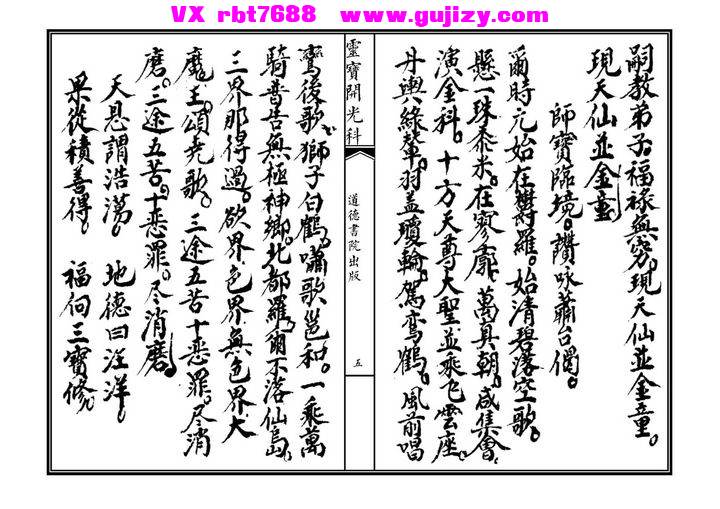 VX rbt7688 www.gujizy.com
嗣教弟子福祿無窮。現天仙並金童。
現天仙並金童
師寶臨境。讚咏蕭台偈。
爾時元始在欝羅。始清碧落空歌。
懸一珠黍米。在寥廓。萬真朝。咸集會。
演金科。十方天尊大聖並乘飞雲座。
丹輿綠輦。羽盖瓊輪。駕鸾鶴。風前唱
靈寶開光科
道德書院出版
五
鸞後歌。獅子白鶴。嘯歌邕和。一乘萬
騎普告無極神鄉。北都羅爾不落仙島。
三界那得過。欲界色界無色界大
魔王頌尭歌。三途五苦十惡罪。尽消
磨。三途五苦。十惡罪。尽消磨
天恩謂浩蕩。 地德曰汪洋。
果從積善得。 福向三寶修。